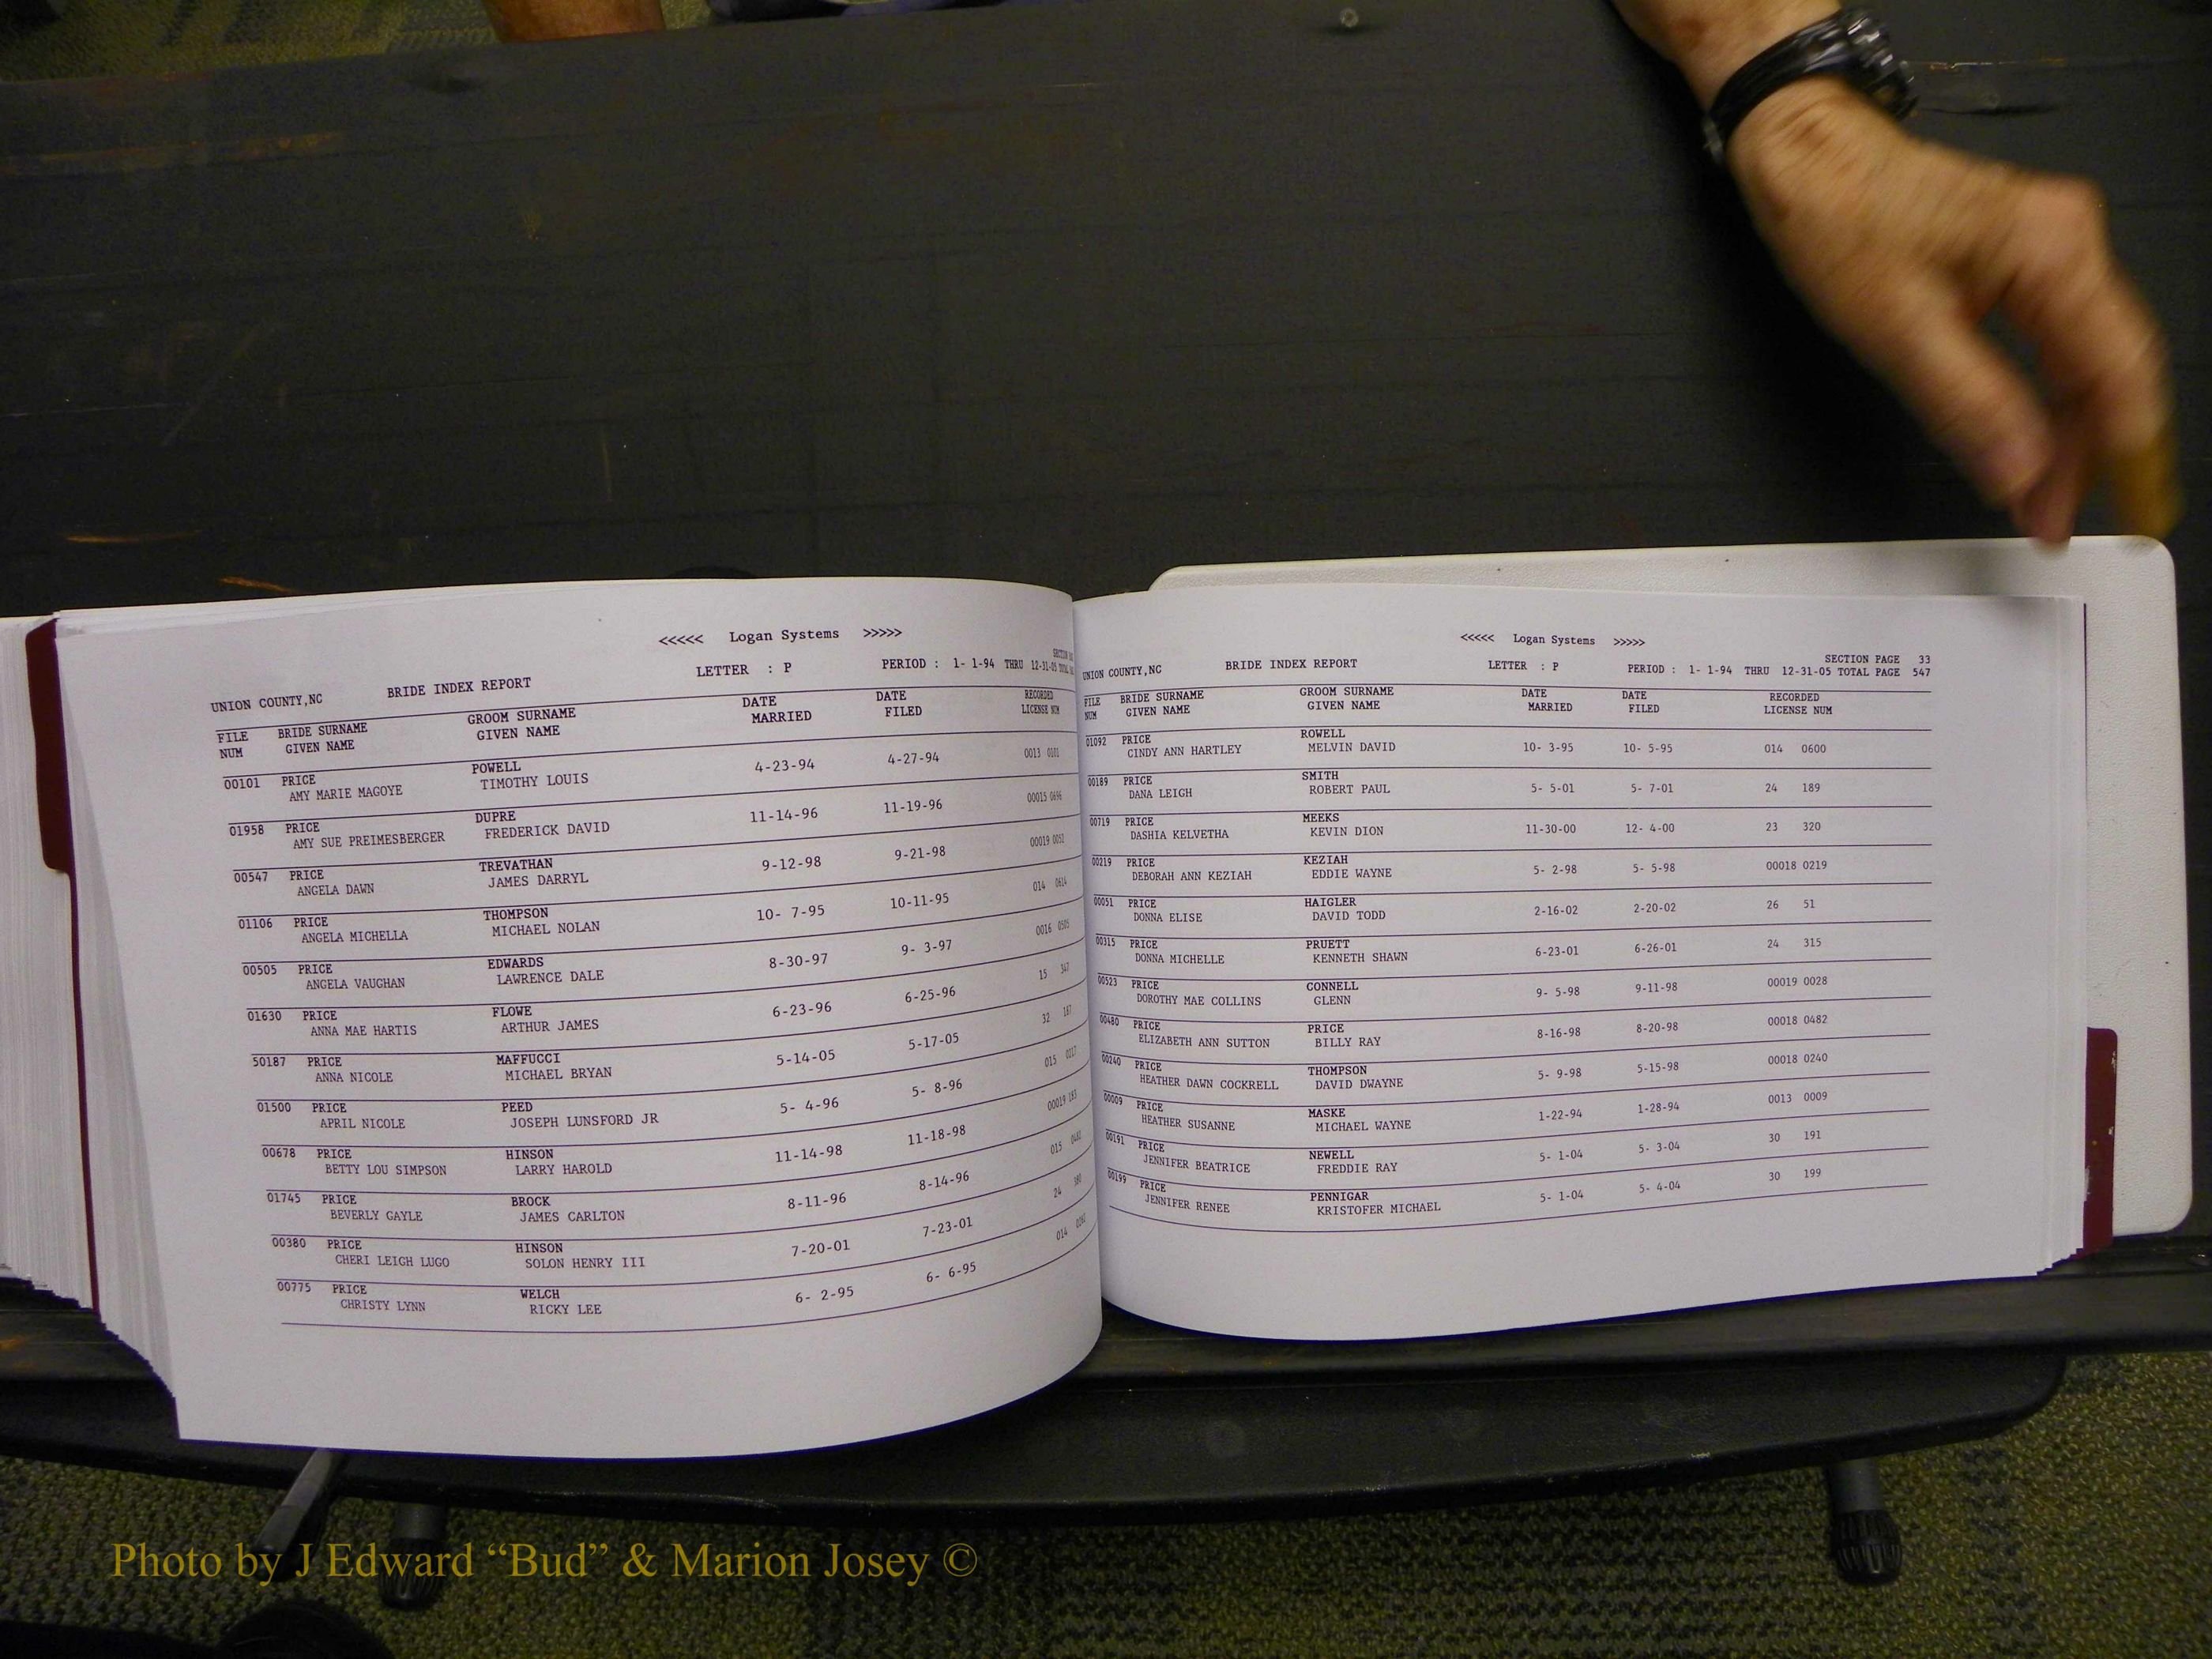 <<<<< Logan Systems >>>>>
UNION COUNTY,NC BRIDE INDEX REPORT LETTER : P PERIOD : 1- 1-94 THRU 12-31-05
FILE BRIDE SURNAME GROOM SURNAME DATE DATE RECORDED
NUM GIVEN NAME GIVEN NAME MARRIED FILED LICENSE NUM
00101 PRICE POWELL 4-23-94 4-27-94 0013 0101
AMY MARIE MAGOYE TIMOTHY LOUIS
01958 PRICE DUPRE 11-14-96 11-19-96 00015 0696
AMY SUE PREIMESBERGER FREDERICK DAVID
00547 PRICE TREVATHAN 9-12-98 9-21-98 00019 0052
ANGELA DAWN JAMES DARRYL
01106 PRICE THOMPSON 10- 7-95 10-11-95 014 0614
ANGELA MICHELLA MICHAEL NOLAN
00505 PRICE EDWARDS 8-30-97 9- 3-97 0016 0505
ANGELA VAUGHAN LAWRENCE DALE
01630 PRICE FLOWE 6-23-96 6-25-96 15 347
ANNA MAE HARTIS ARTHUR JAMES
50187 PRICE MAFFUCCI 5-14-05 5-17-05 32 187
ANNA NICOLE MICHAEL BRYAN
01500 PRICE PEED 5- 4-96 5- 8-96 015 0217
APRIL NICOLE JOSEPH LUNSFORD JR
00678 PRICE HINSON 11-14-98 11-18-98 00019 183
BETTY LOU SIMPSON LARRY HAROLD
01745 PRICE BROCK 8-11-96 8-14-96 015
BEVERLY GAYLE JAMES CARLTON
00380 PRICE HINSON 7-20-01 7-23-01 24 380
CHERI LEIGH LUGO SOLON HENRY III
00775 PRICE WELCH 6- 2-95 6- 6-95 014
CHRISTY LYNN RICKY LEE
<<<<< Logan Systems >>>>>
SECTION PAGE 33
UNION COUNTY,NC BRIDE INDEX REPORT LETTER : P PERIOD : 1- 1-94 THRU 12-31-05 TOTAL PAGE 547
FILE BRIDE SURNAME GROOM SURNAME DATE DATE RECORDED
NUM GIVEN NAME GIVEN NAME MARRIED FILED LICENSE NUM
01092 PRICE ROWELL 10- 3-95 10- 5-95 014 0600
CINDY ANN HARTLEY MELVIN DAVID
00189 PRICE SMITH 5- 5-01 5- 7-01 24 189
DANA LEIGH ROBERT PAUL
00719 PRICE MEEKS 11-30-00 12- 4-00 23 320
DASHIA KELVETHA KEVIN DION
00219 PRICE KEZIAH 5- 2-98 5- 5-98 00018 0219
DEBORAH ANN KEZIAH EDDIE WAYNE
00051 PRICE HAIGLER 2-16-02 2-20-02 26 51
DONNA ELISE DAVID TODD
00315 PRICE PRUETT 6-23-01 6-26-01 24 315
DONNA MICHELLE KENNETH SHAWN
00523 PRICE CONNELL 9- 5-98 9-11-98 00019 0028
DOROTHY MAE COLLINS GLENN
00480 PRICE PRICE 8-16-98 8-20-98 00018 0482
ELIZABETH ANN SUTTON BILLY RAY
00240 PRICE THOMPSON 5- 9-98 5-15-98 00018 0240
HEATHER DAWN COCKRELL DAVID DWAYNE
00009 PRICE MASKE 1-22-94 1-28-94 0013 0009
HEATHER SUSANNE MICHAEL WAYNE
00191 PRICE NEWELL 5- 1-04 5- 3-04 30 191
JENNIFER BEATRICE FREDDIE RAY
00199 PRICE PENNIGAR 5- 1-04 5- 4-04 30 199
JENNIFER RENEE KRISTOFER MICHAEL
Photo by J Edward “Bud” & Marion Josey ©